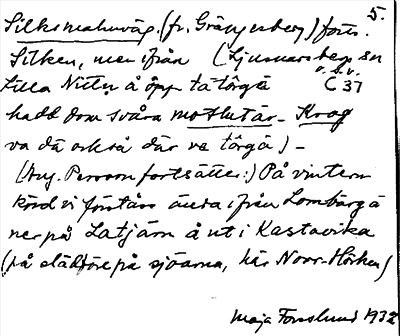 5.
Silksmalmväg. (fr. Grängesberg) forts.
Silken, men ifrån (Ljusnarsberg sn
o.s.v.
lilla Nitten å öpp ta törgä C 37
hadd dom svåra motlutär. Krog
va dä också där va törgä) -
(Aug. Persson fortsätter:) På vintern
körd vi förstäss ända ifrån Lombärgä
ner på Latjärn å ut i Kastavika
(på slädföre på sjöarna, här Norr-Hörken)
Maja Forsslund 1932